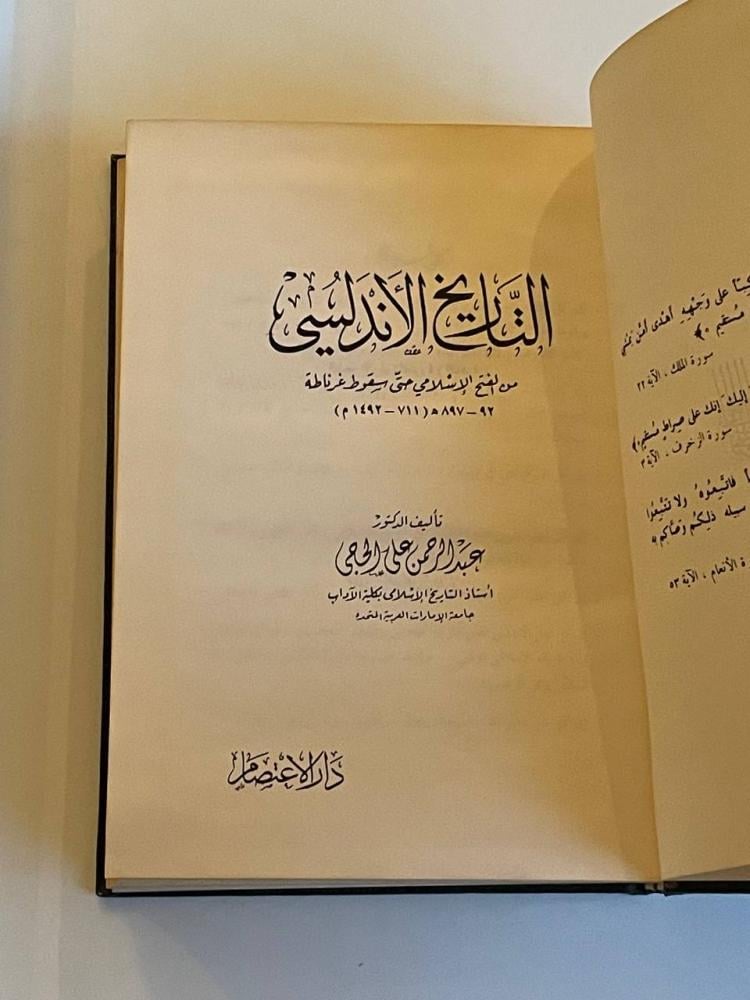 التَّاريخ الأندلسي
من الفتح الإسلامي حتى سقوط غرناطة
٩٢ - ٨٩٧ ھ (٧١١ - ١٤٩٢ م)
تأليف الدكتور
عبد الرحمن علي الحجي
أستاذ التاريخ الإسلامي بكلية الآداب
جامعة الإمارات العربية المتحدة
دار الاعتصام
على وَجْهِهِ أَهْدَى أَمَّن يَمْشِي
سورة الملك ، الآية ٢٢
إليك إنك على صراط مستقيم ﴾
سورة الزخرف ، الآية
فاتبعوهُ ولا تتبعُوا
سبيله ذلِكُم وصَّاكم به
الأنعام ، الآية ٥٣